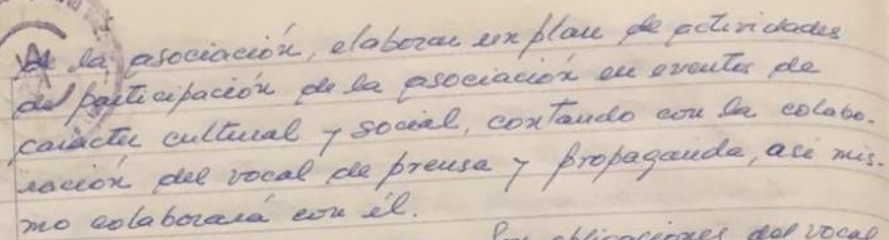 de la asociación, elaborar un plan de actividades
de participación de la asociación en eventos de
carácter cultural y social, contando con la colabo-
ración del vocal de prensa y propaganda, asi mis-
mo colaborará con él.
obligaciones del vocal